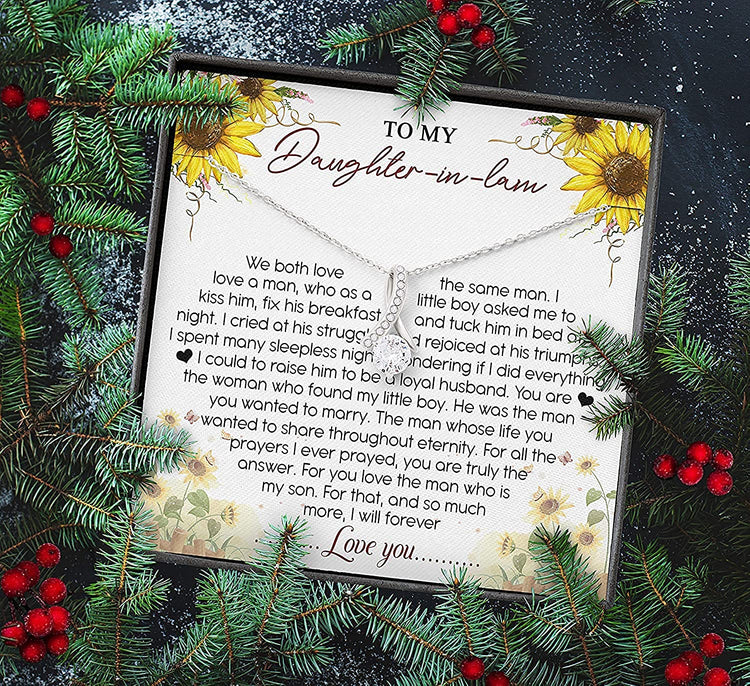 TO MY
Daughter-in-lam
We both love the same man. I
love a man, who as a little boy asked me to
kiss him, fix his breakfast and tuck him in bed at
night. I cried at his rejoiced at his triumphs
I spent many sleepless if I did everything
I could to raise him to be loyal husband. You are
the woman who found my little boy. He was the man
you wanted to marry. The man whose life you
wanted to share throughout eternity. For all the
prayers I ever prayed, you are truly the
answer. For you love the man who is
my son. For that, and so much
more, I will forever
..........Love you..........